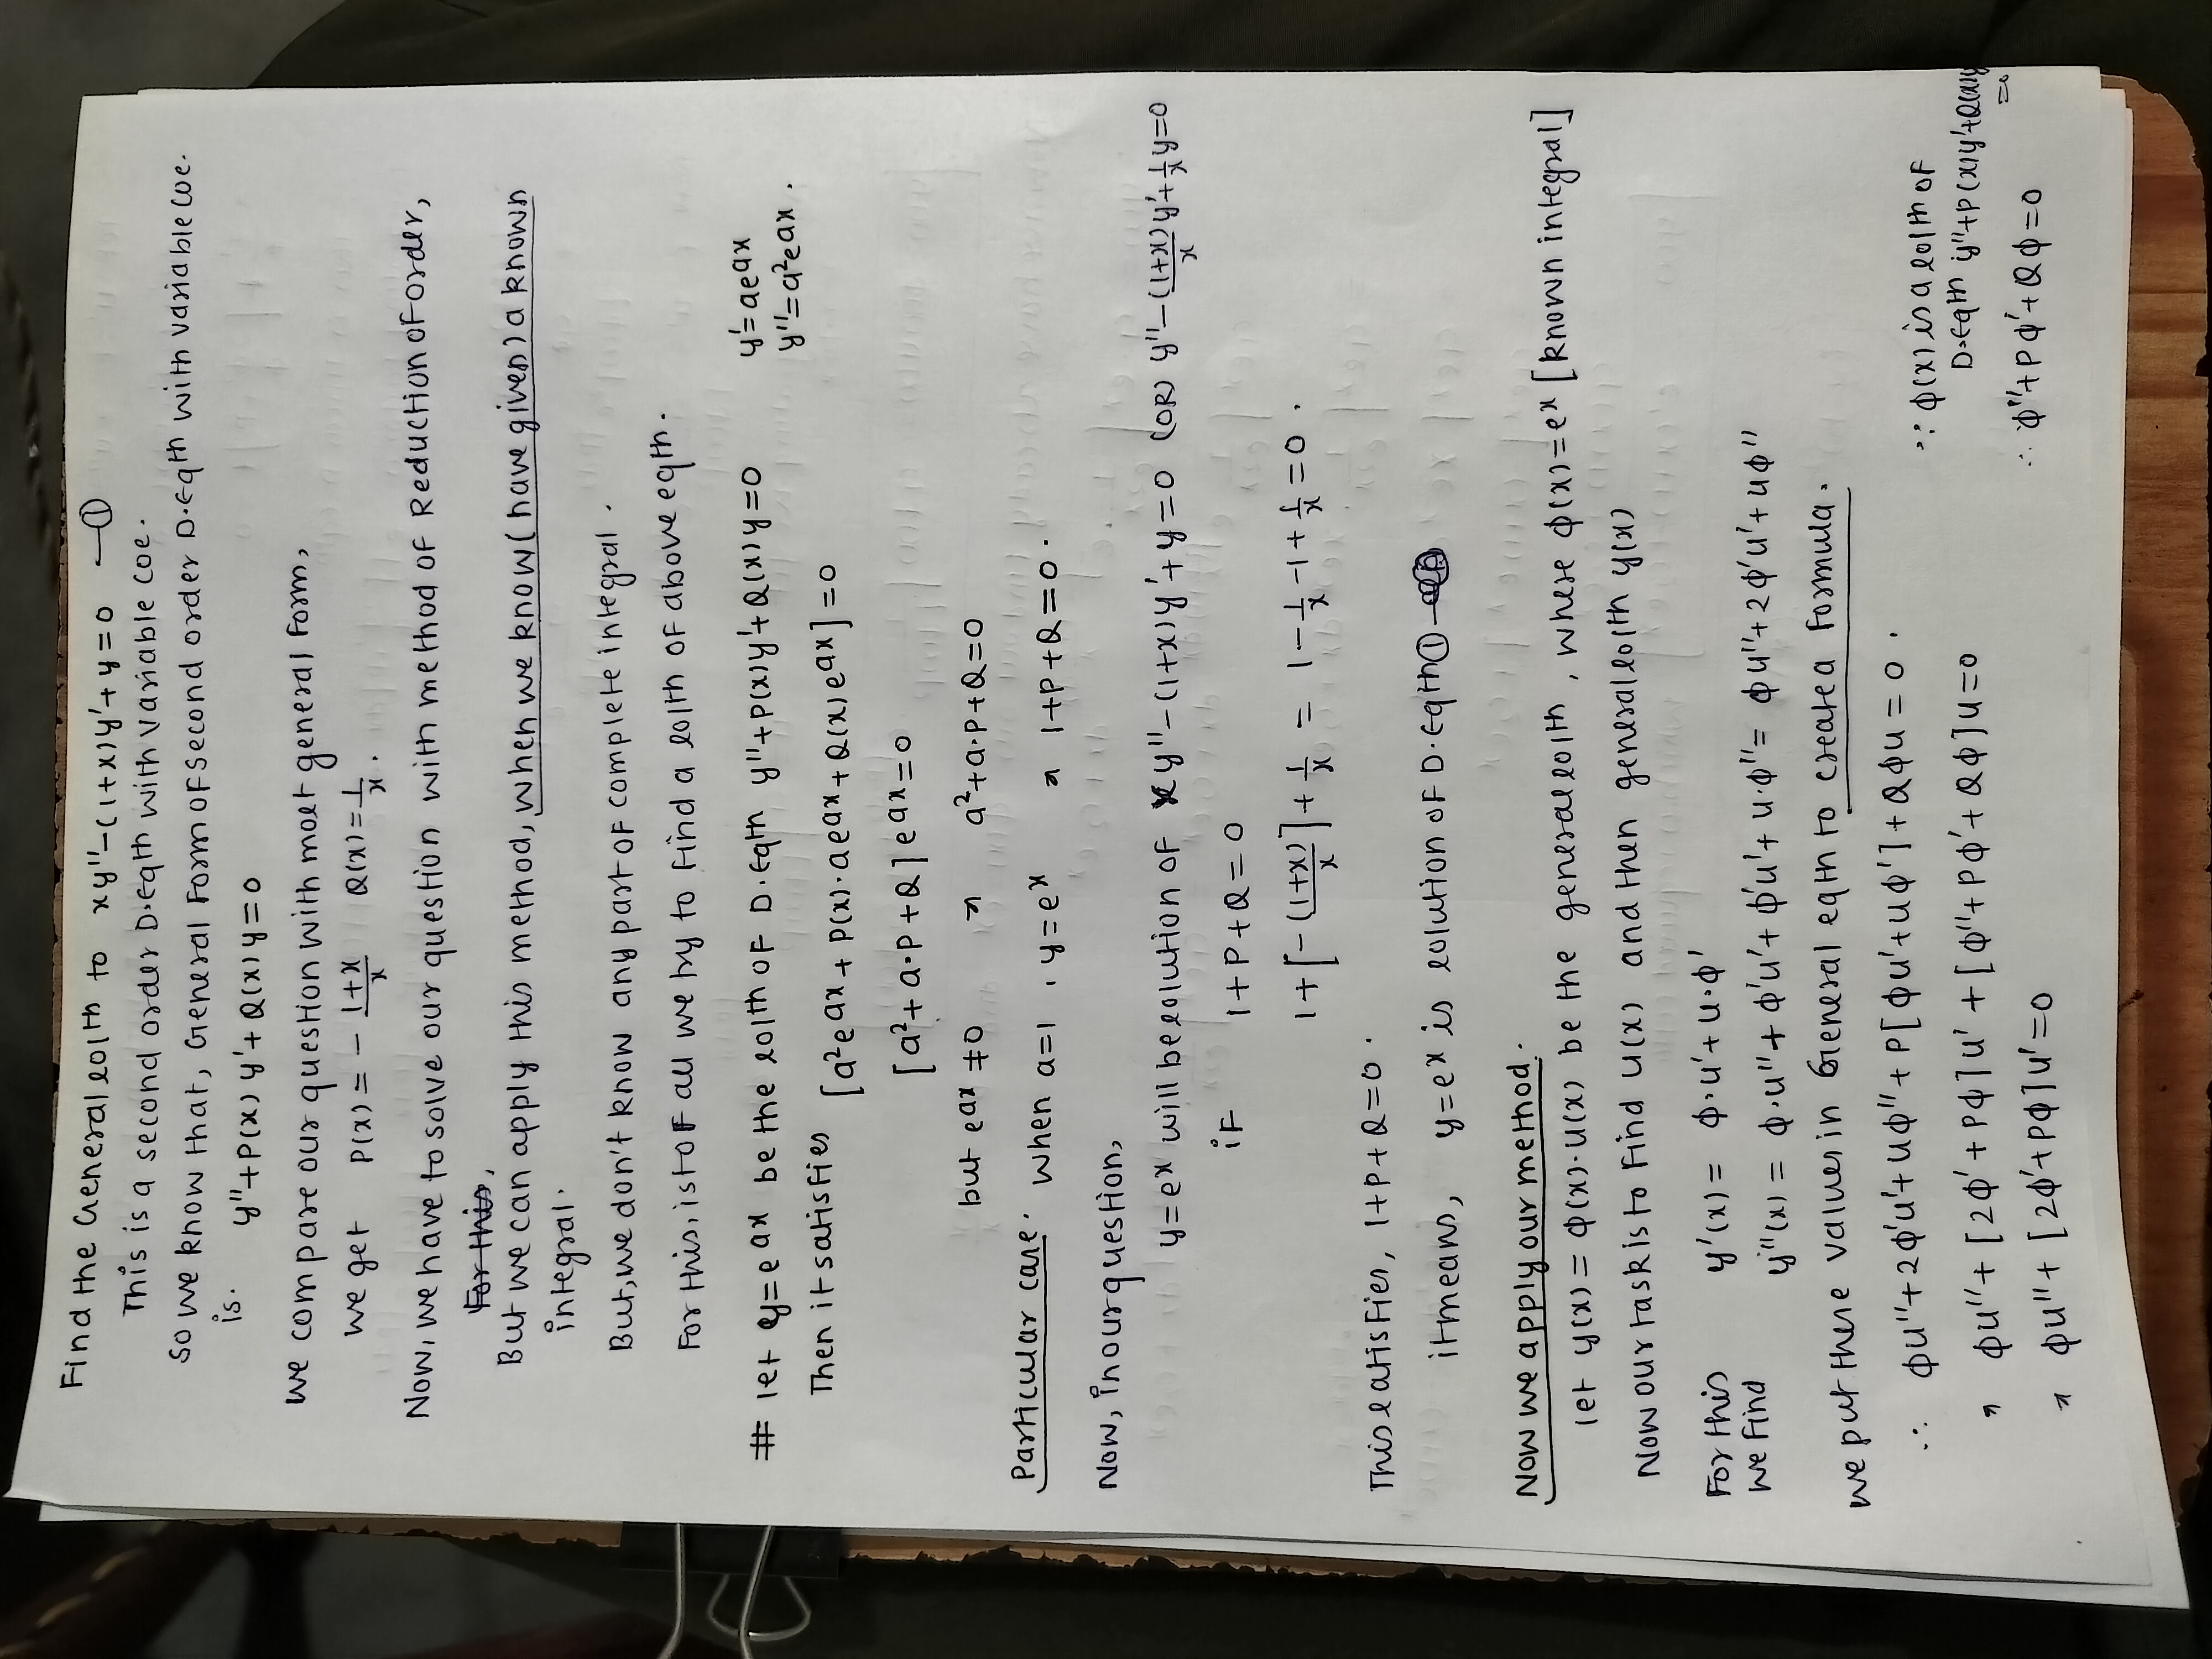 Find the General solth to xy''-(1+x)y'+y=0 —①
This is a second order D.Eqth with variable coe.
so we know that, General Form of second order D.Eqth with variable coe.
is. y''+P(x)y'+Q(x)y=0
we compare our question with most general Form,
we get P(x) = - \frac{1+x}{x} Q(x)=\frac{1}{x}.
Now, we have to solve our question with method of Reduction of order,
For this,
But we can apply this method, when we know(have given) a known
integral.
But, we don't know any part of complete integral.
For this, istof all we try to find a solth of above eqth.
# let y=e^{ax} be the solth of D.Eqth y''+P(x)y'+Q(x)y=0 y'=ae^{ax}
y''=a²e^{ax}.
Then it satisfies [a²e^{ax}+P(x).ae^{ax}+Q(x)e^{ax}]=0
[a²+a.P+Q]e^{ax}=0
but e^{ax}≠0 ⇒ a²+a.P+Q=0
Particular case. when a=1, y=e^x ⇒ 1+P+Q=0.
Now, in our question,
y=e^x will be solution of xy''-(1+x)y'+y=0 (OR) y''-\frac{(1+x)}{x}y'+\frac{1}{x}y=0
iF 1+P+Q=0
1+[-\frac{(1+x)}{x}]+\frac{1}{x} = 1-\frac{1}{x}-1+\frac{1}{x}=0.
This satisfies, 1+P+Q=0.
it means, y=e^x is solution of D.Eqth①
Now we apply our method.
let y(x)=φ(x).u(x) be the general solth, where φ(x)=e^x [known integral]
Now our task is to Find u(x) and then general solth y(x)
For this y'(x) = φ.u'+u.φ'
we find y''(x) = φ.u''+φ'u'+φ'u'+u.φ''= φu''+2φ'u'+uφ''
we put these values in General eqth to create a Formula.
∴ φu''+2φ'u'+uφ''+P[φu'+uφ']+Qφu=0.
⇒ φu''+[2φ'+Pφ]u'+[φ''+Pφ'+Qφ]u=0
⇒ φu''+[2φ'+Pφ]u'=0
∵ φ(x) is a solth of
D.Eqth y''+P(x)y'+Q(x)y
=0
∴ φ''+Pφ'+Qφ=0